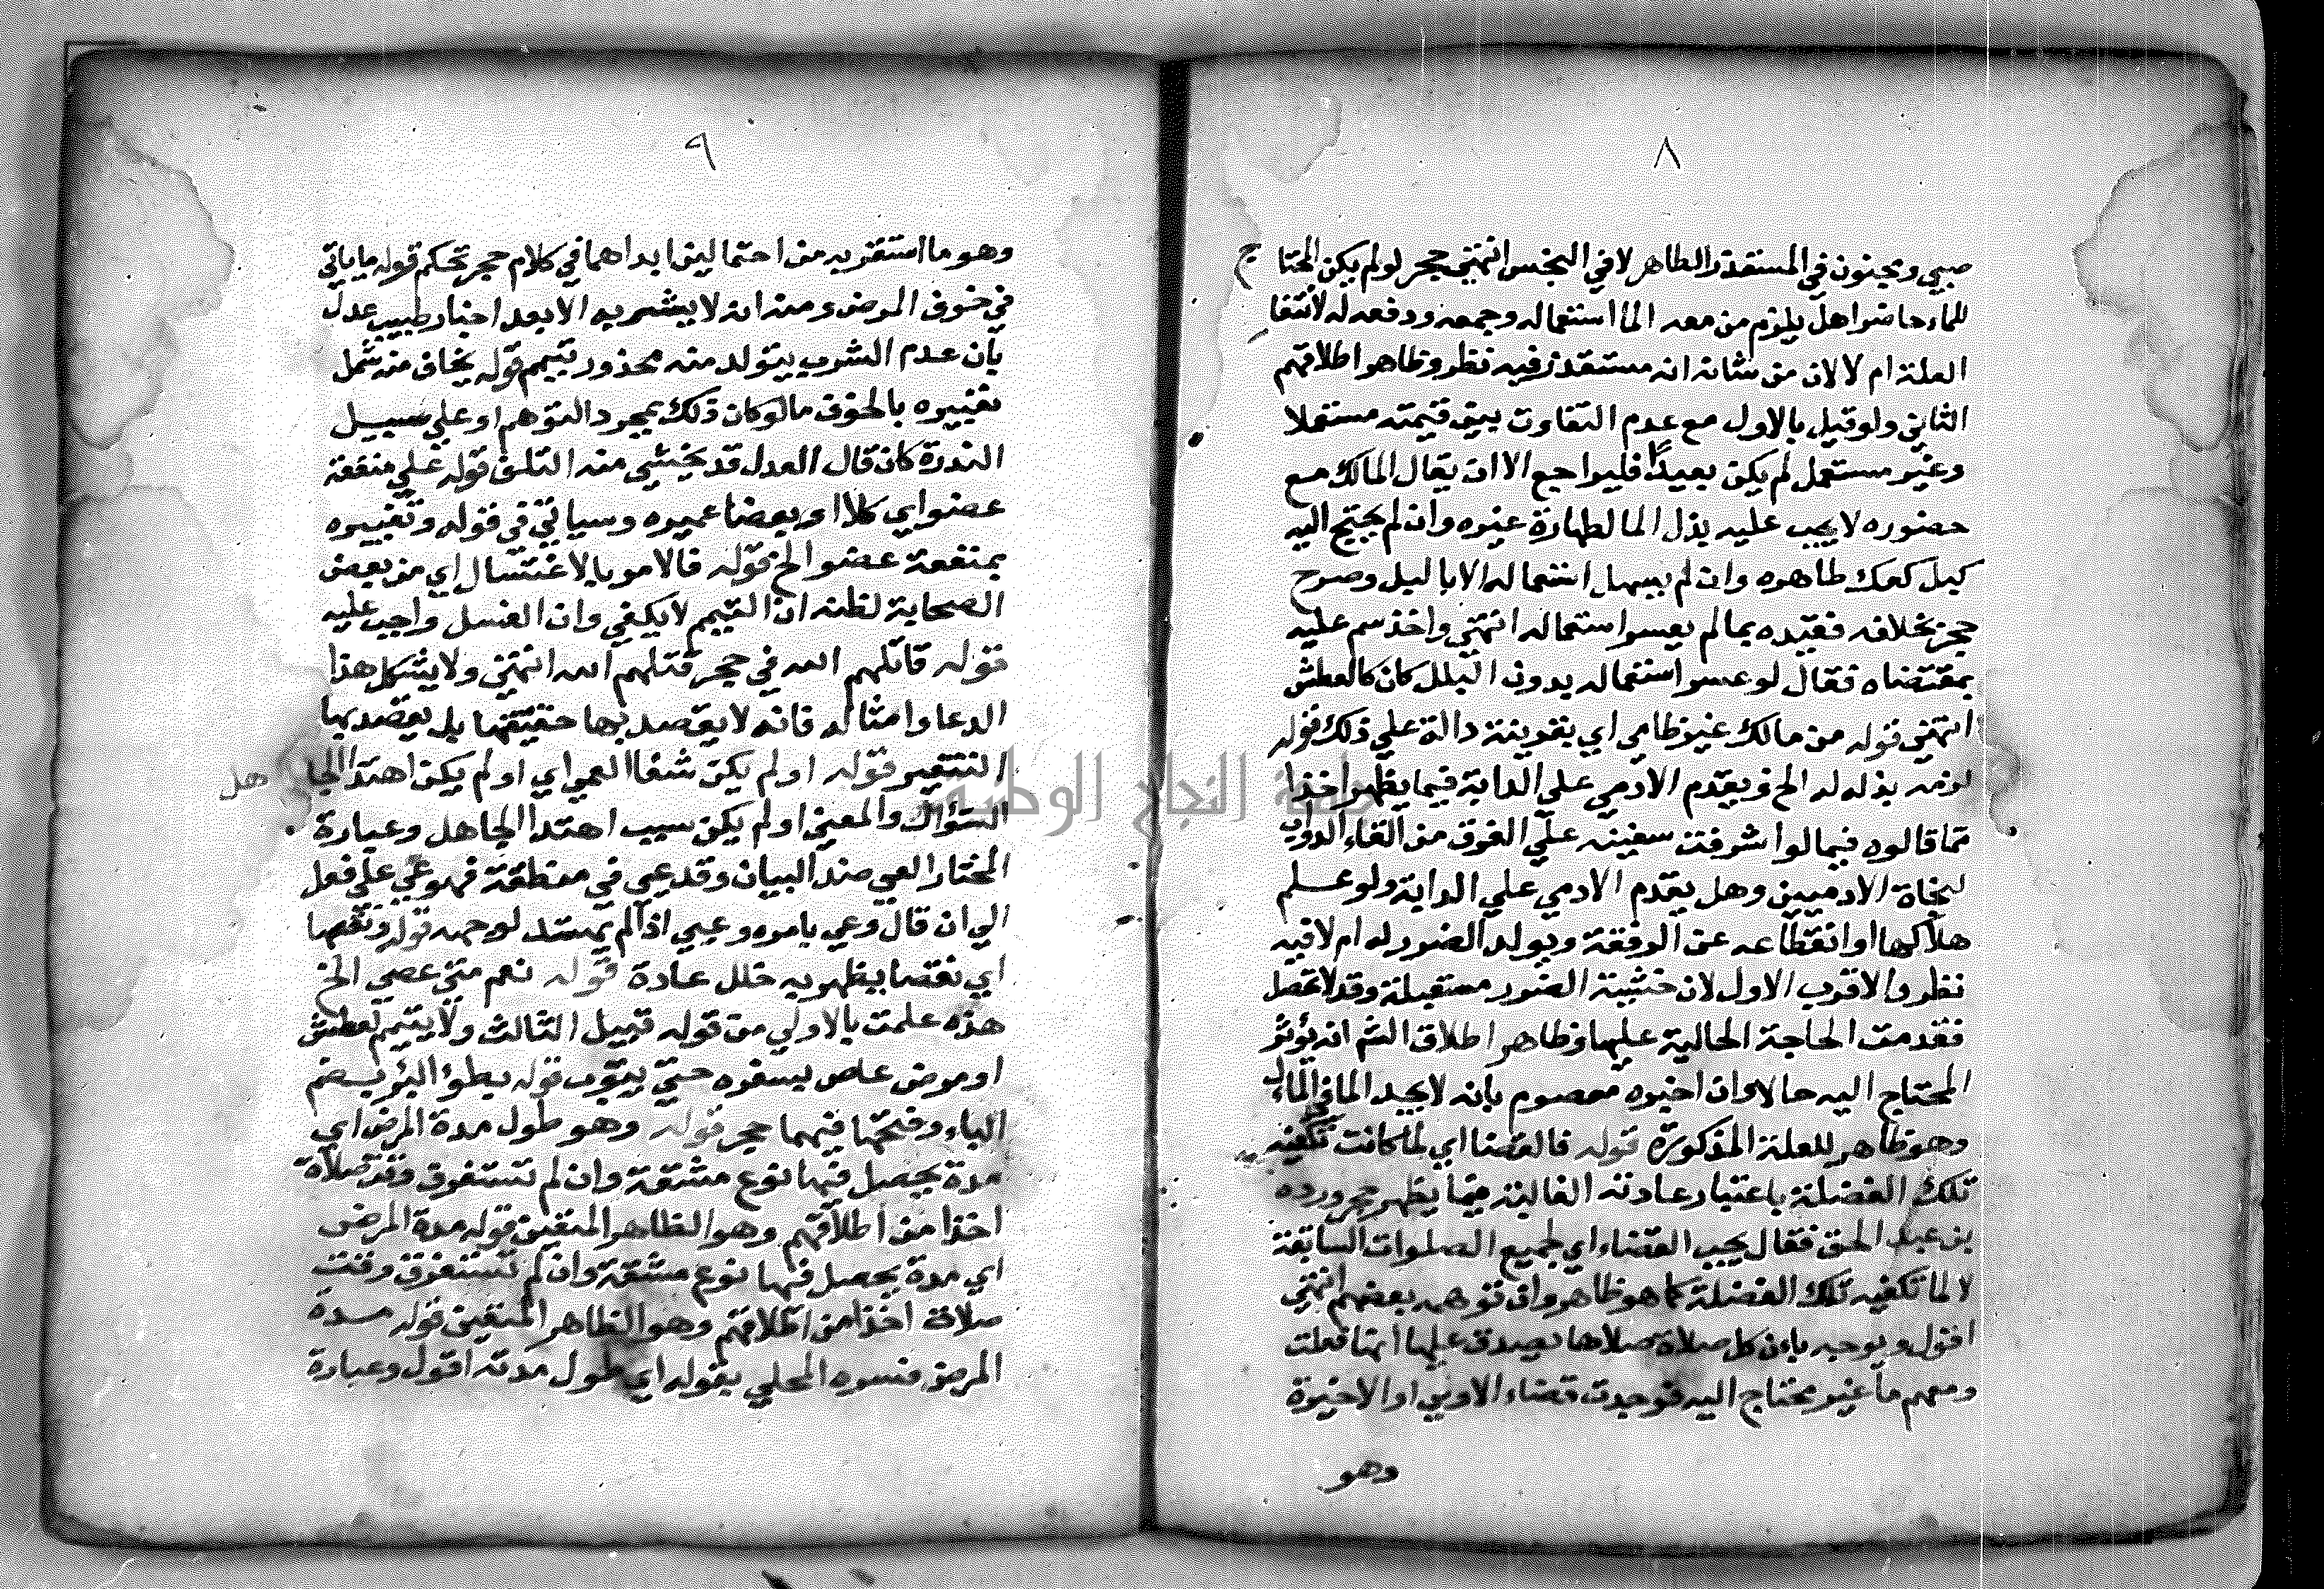 ٨
صبي ومجنون في المستقذر الطاهر لا في النجس انتهى حجر لو لم يكن المحتاج
للماء حاضرا هل يلزم من معه الماء استعماله وجمعه ودفعه له لانتفا
العلة ام لا لان من شانه انه مستقذر فيه نظر وظاهر اطلاقهم
الثاني ولو قيل بالاول مع عدم التفاوت بين قيمته مستعملا
وغير مستعمل لم يكن بعيدًا فليراجع الا ان يقال المالك مع
حضوره لا يجب عليه بذل الما لطهارة غيره وان لم يحتج اليه
كبل كعك طاهره وان لم يسهل استعماله الا بالبل وصرح
حجر بخلافه فقيده بما لم يعسر استعماله انتهى واخذ سم عليه
بمقتضاه فقال لو عسر استعماله بدون البلل كان كالعطش
انتهى قوله من مالك غير ظامي اي بقرينة دالة على ذلك قوله
لزمه بذله له الخ ويقدم الادمي على الدابة فيما يظهر اخذا
مما قالوه فيما لو اشرفت سفينه على الغرق من القاء الدواب
لنجاة الادميين وهل يقدم الادمي على الدابة ولو علم
هلاكها او انقطاعه عن الرفقة وتولد الضرر له ام لا فيه
نظر والاقرب الاول لان خشية الضرر مستقبلة وقد لا تحصل
فقدمت الحاجة الحالية عليها وظاهر اطلاق الشم انه يؤثر
المحتاج اليه حالا وان اخبره معصوم بانه لا يجد الما في المال
وهو ظاهر للعلة المذكورة قوله فالقضا اي لما كانت تكفيه
تلك الفضلة باعتبار عادته الغالبة فيما يظهر حجر ورده
بن عبد الحق فقال يجب القضاء اي لجميع الصلوات السابقة
لا لما تكفيه تلك الفضلة كما هو ظاهر وان توهمه بعضهم انتهى
اقول ويوجه بان كل صلاة صلاها يصدق عليها انها فعلت
ومعهم ما غير محتاج اليه فوجدت قضاء الاولى او الاخيرة
وهو
٩
وهو ما استقر به من احتمالين ابداهما في كلام حجر تحكم قوله ما ياتي
في خوف المرض ومنه انه لا يشربه الا بعد اخبار طبيب عدل
بان عدم الشرب يتولد منه محذور تيمم قوله يخاف منه شمل
تعبيره بالخوف ما لو كان ذلك بمجرد التوهم او على سبيل
الندرة كان قال العدل قد يخشى منه التلف قوله على منفعة
عضو اي كلا او بعضا عميره وسياتي في قوله وتعبيره
بمنفعة عضو الخ قوله فالامر بالاغتسال اي من بعض
الصحابة لظنه ان التيمم لا يكفي وان الغسل واجب عليه
قوله قاتلهم الله في حجر قتلهم الله انتهى ولا يشكل هذا
الدعا وامثاله فانه لا يقصد بها حقيقتها بل يقصد بها
التنفير قوله او لم يكن شفا العي اي او لم يكن اهتدا الجاهل
السؤال والمعنى او لم يكن سبب اهتدا الجاهل وعبارة
المختار العي ضد البيان وقد عي في منطقه فهو عي على فعل
الى ان قال وعي بامره وعيي اذا لم يهتد لوجهه قوله ونقصها
اي نقصا يظهر به خلل عادة قوله نعم متى عصى الخ
هذه علمت بالاولى من قوله قبيل الثالث ولا يتيمم لعطش
او مرض عاص بسفره حتى يتوب قوله بطؤ البرؤ بضم
الباء وفتحها فيهما حجر قوله وهو طول مدة المرض اي
مدة يحصل فيها نوع مشقة وان لم تستغرق وقت صلاة
اخذا من اطلاقهم وهو الظاهر المتعين قوله مدة المرض
اي مدة يحصل فيها نوع مشقة وان لم تستغرق وقت
صلاة اخذا من اطلاقهم وهو الظاهر المتعين قوله مدة
المرض فسره المحلي بقوله اي طول مدته اقول وعبارة